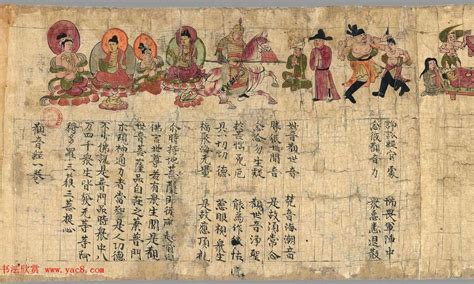 諍訟經官處 怖畏軍陣中
念彼觀音力 眾怨悉退散
妙音觀世音 梵音海潮音
勝彼世間音 是故須常念
念念勿生疑 觀世音淨聖
於苦惱死厄 能為作依怙
具一切功德 慈眼視眾生
福聚海無量 是故應頂礼
尒時持地菩薩即從座起前白
佛言世尊若有眾生聞是觀
世音菩薩品自在之業普門
示現神通力者當知是人功德
不少佛說是普門品時眾中八
万四千眾生皆發无等等阿
耨多羅三藐三菩提心
觀音經一卷
书法欣赏 www.yac8.com